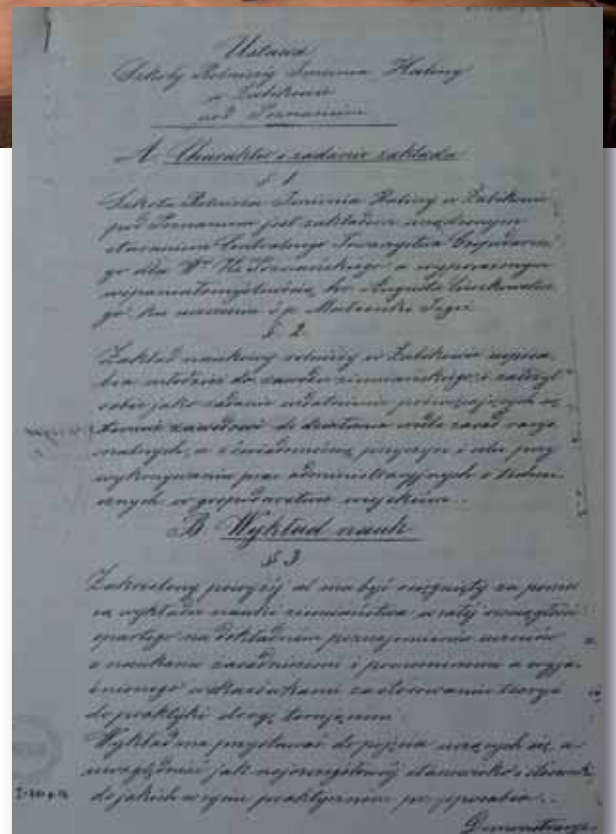 Ustawa
Szkoły Rolniczej Imienia Haliny
w Żabikowie
pod Poznaniem
A. Charakter i zadanie zakładu
§ 1
Szkoła Rolnicza Imienia Haliny w Żabikowie
pod Poznaniem jest zakładem urządzonym
staraniem Centralnego Towarzystwa Gospodarcze-
go dla Wgo Ks. Poznańskiego a wyposażonym
wspaniałomyślnością hr. Augusta Cieszkowskie-
go ku uczczeniu ś. p. Małżonki Jego.
§ 2
Zakład naukowy rolniczy w Żabikowie usposa-
bia młodzież do zawodu ziemiańskiego i założył
sobie jako zadanie udolnienie poświęcających się
temuż zawodowi do działania wedle zasad racyo-
nalnych, a z świadomością przyczyn i celu przy
wykonywaniu prac administracyjnych i techni-
cznych w gospodarstwie wiejskim.
B Wykład nauk
§ 3
Zakreślony powyżej cel ma być osiągnięty za pomo-
cą wykładu nauki ziemiaństwa w całej rozciągłości
opartego na dokładnem poznajomieniu uczniów
z naukami zasadniczemi i pomocniczemi a wyja-
śnionego wskazówkami zastosowanie teoryi
do praktyki drogę torującemi.
Wykład ma przystawać do pojęcia uczących się a
uwzględniać jak najszczegółowiej stanowisko i stosunki
do jakich w życiu praktycznem przysposabia.
Demonstracye